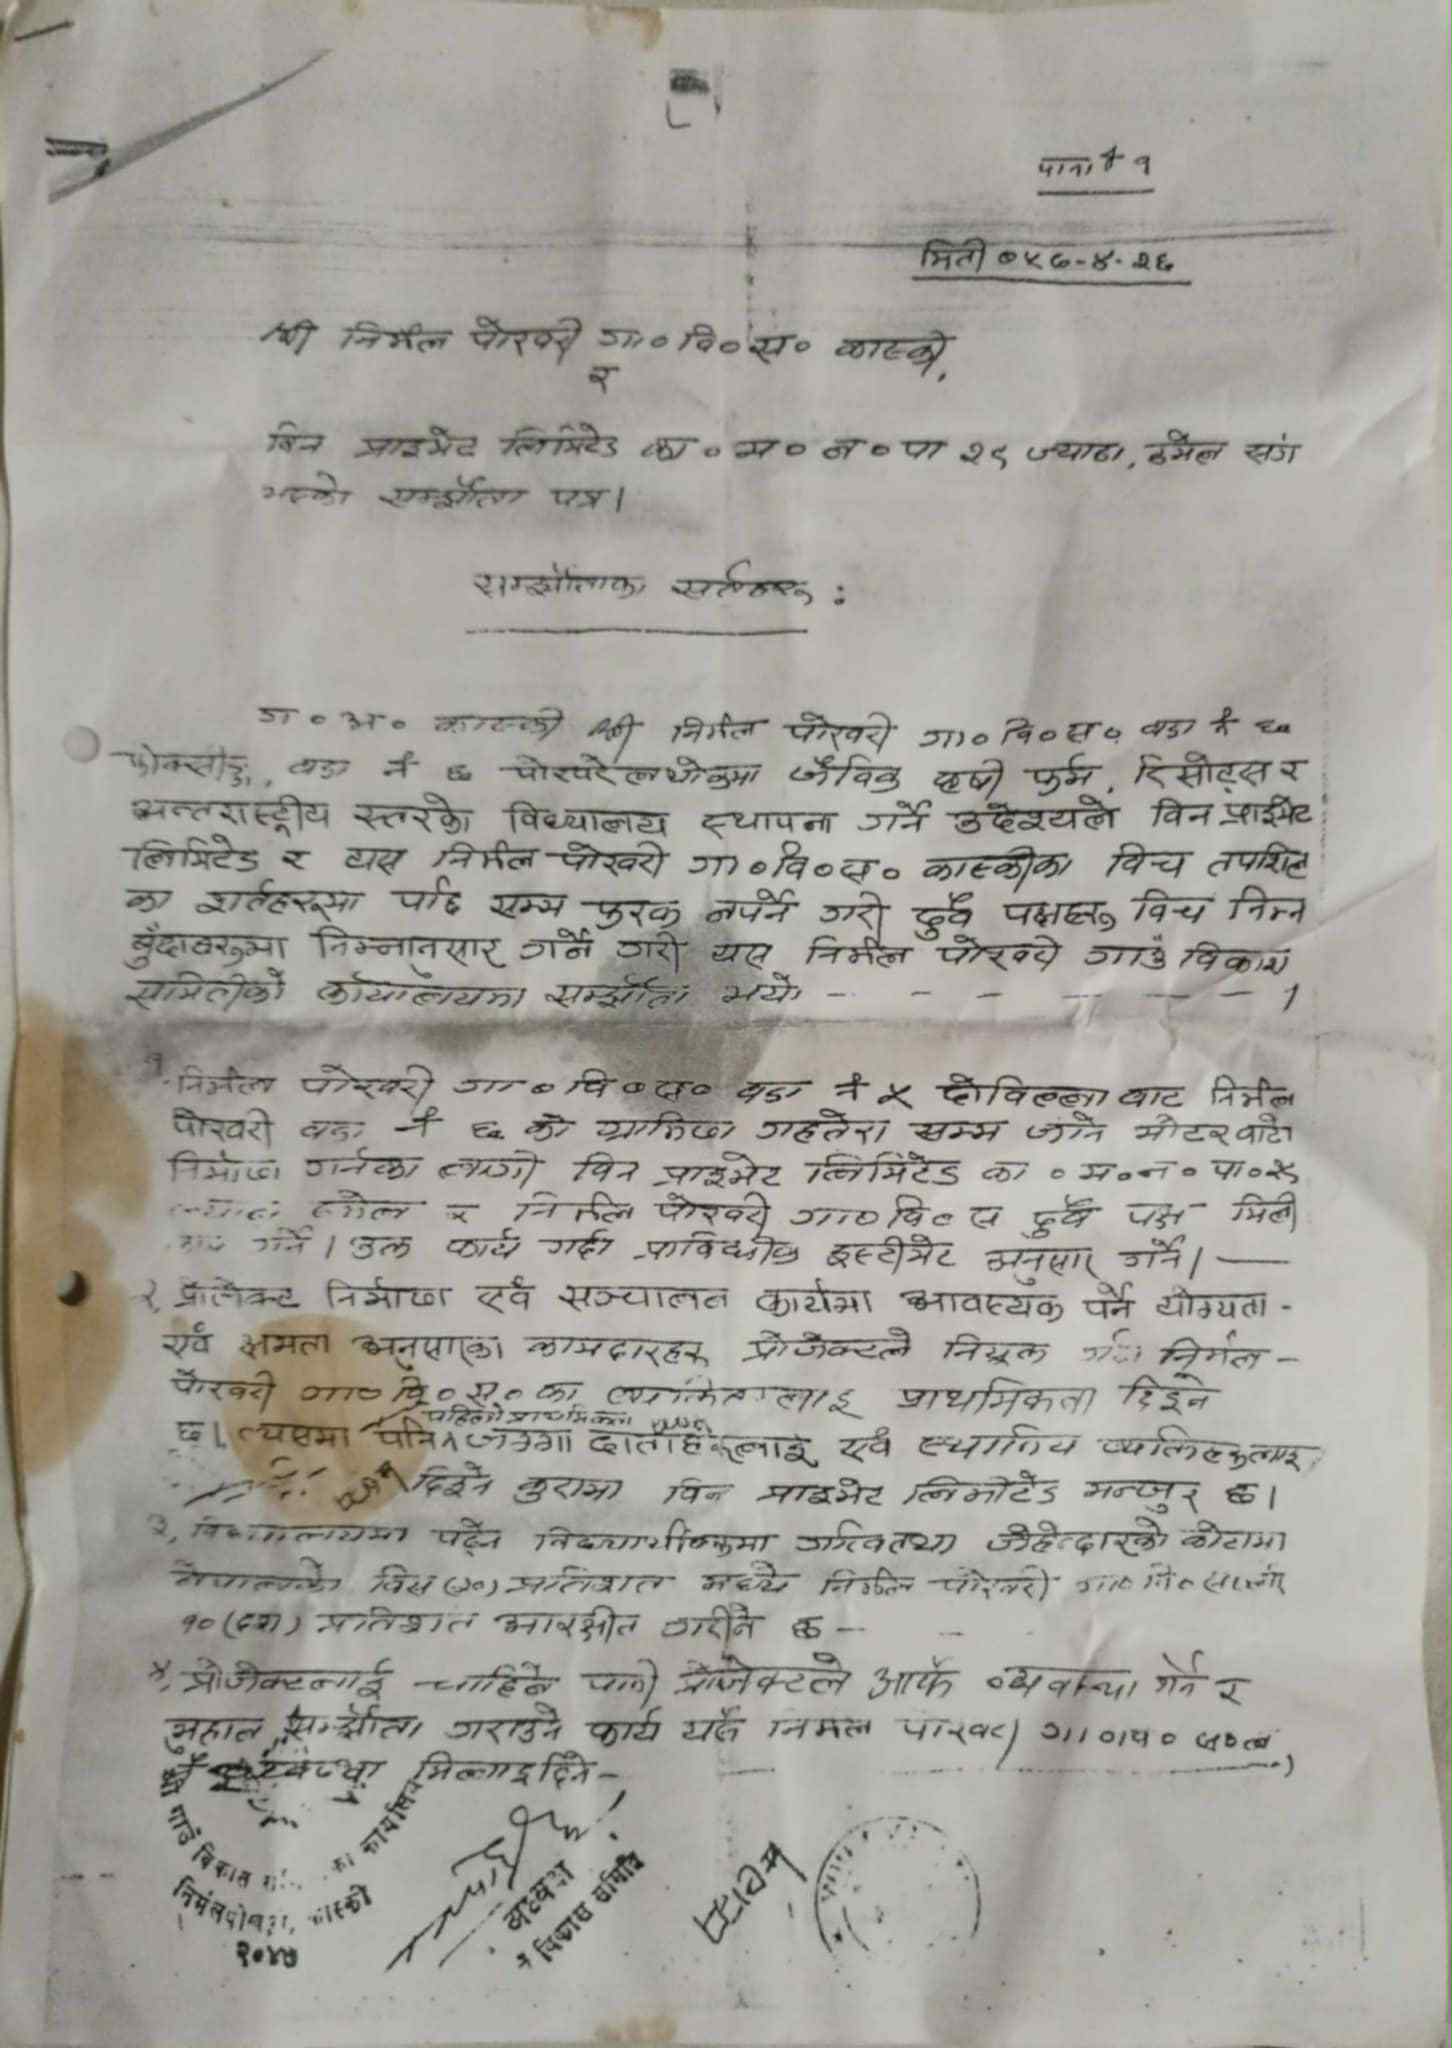 पाना नं १
मिती ०५७-४-२६
श्री निर्मल पोखरी गा०वि०स० कास्की,
र
विन प्राइभेट लिमिटेड का०म०न०पा २९ ज्याठा, ठमेल संग
भएको सम्झौता पत्र।
सम्झौताका सर्तहरू :
कास्की श्री निर्मल पोखरी गा०वि०स० वडा नं
वडा नं ६ जैविक कृषी फर्म, रिसोट्स र
अन्तरास्ट्रीय स्तरको विध्यालय स्थापना गर्ने उद्देश्यले विन प्राइभेट
लिमिटेड र यस निर्मल पोखरी गा०वि०स० कास्कीका विच तपशिल
का शर्तहरूमा पछि सम्म फरक नपर्ने गरी दुवै पक्षहरू विच निम्न
बुँदाहरूमा निम्नानुसार गर्ने गरी यस निर्मल पोखरी गाउँ विकास
समितीको कार्यालयमा सम्झौता भयो - - - - - - - ।
१. निर्मल पोखरी गा०वि०स० वडा नं ५ दोविल्ला वाट निर्मल
पोखरी वडा नं को गहतेरा सम्म जाने मोटर वाटो
निर्माण गर्नका लागी विन प्राइभेट लिमिटेड का०म०न०पा०
ठमेल र निर्मल पोखरी गा०वि०स दुवै पक्ष मिली
गर्ने। उक्त कार्य गर्दा प्राविधीक इस्टीमेट अनुसार गर्ने। —
२. प्रोजेक्ट निर्माण एवं सञ्चालन कार्यमा आवस्यक पर्ने योग्यता -
एवं क्षमता अनुसारका कामदारहरू प्रोजेक्टले नियुक्त गर्दा निर्मल -
पोखरी गा०वि०स०का लाइ प्राथमिकता दिइने
पहिलो प्राथमिकता
छ। त्यसमा पनि जग्गा दाताहरूलाइ एवं स्थानिय व्यक्तिहरूलाइ
दिइने कुरामा विन प्राइभेट लिमीटेड मन्जुर छ।
३. विध्यालयमा पढ्ने विद्यार्थीहरूमा कोटामा
नेपालको विस (२०) प्रतिशत मध्ये निर्मल पोखरी
१० (दश) प्रतिशत आरक्षीत गरीने छ -
४. प्रोजेक्टलाई चाहिने पानी प्रोजेक्टले आफै व्यवस्था गर्ने र
मुहान सम्झौता गराउने कार्य यसै निर्मल पोखरी
मिलाइ दिने -
गाउँ विकास का कार्यालय
निर्मलपोखरी, कास्की
२०४७
अध्यक्ष
विकास समिति